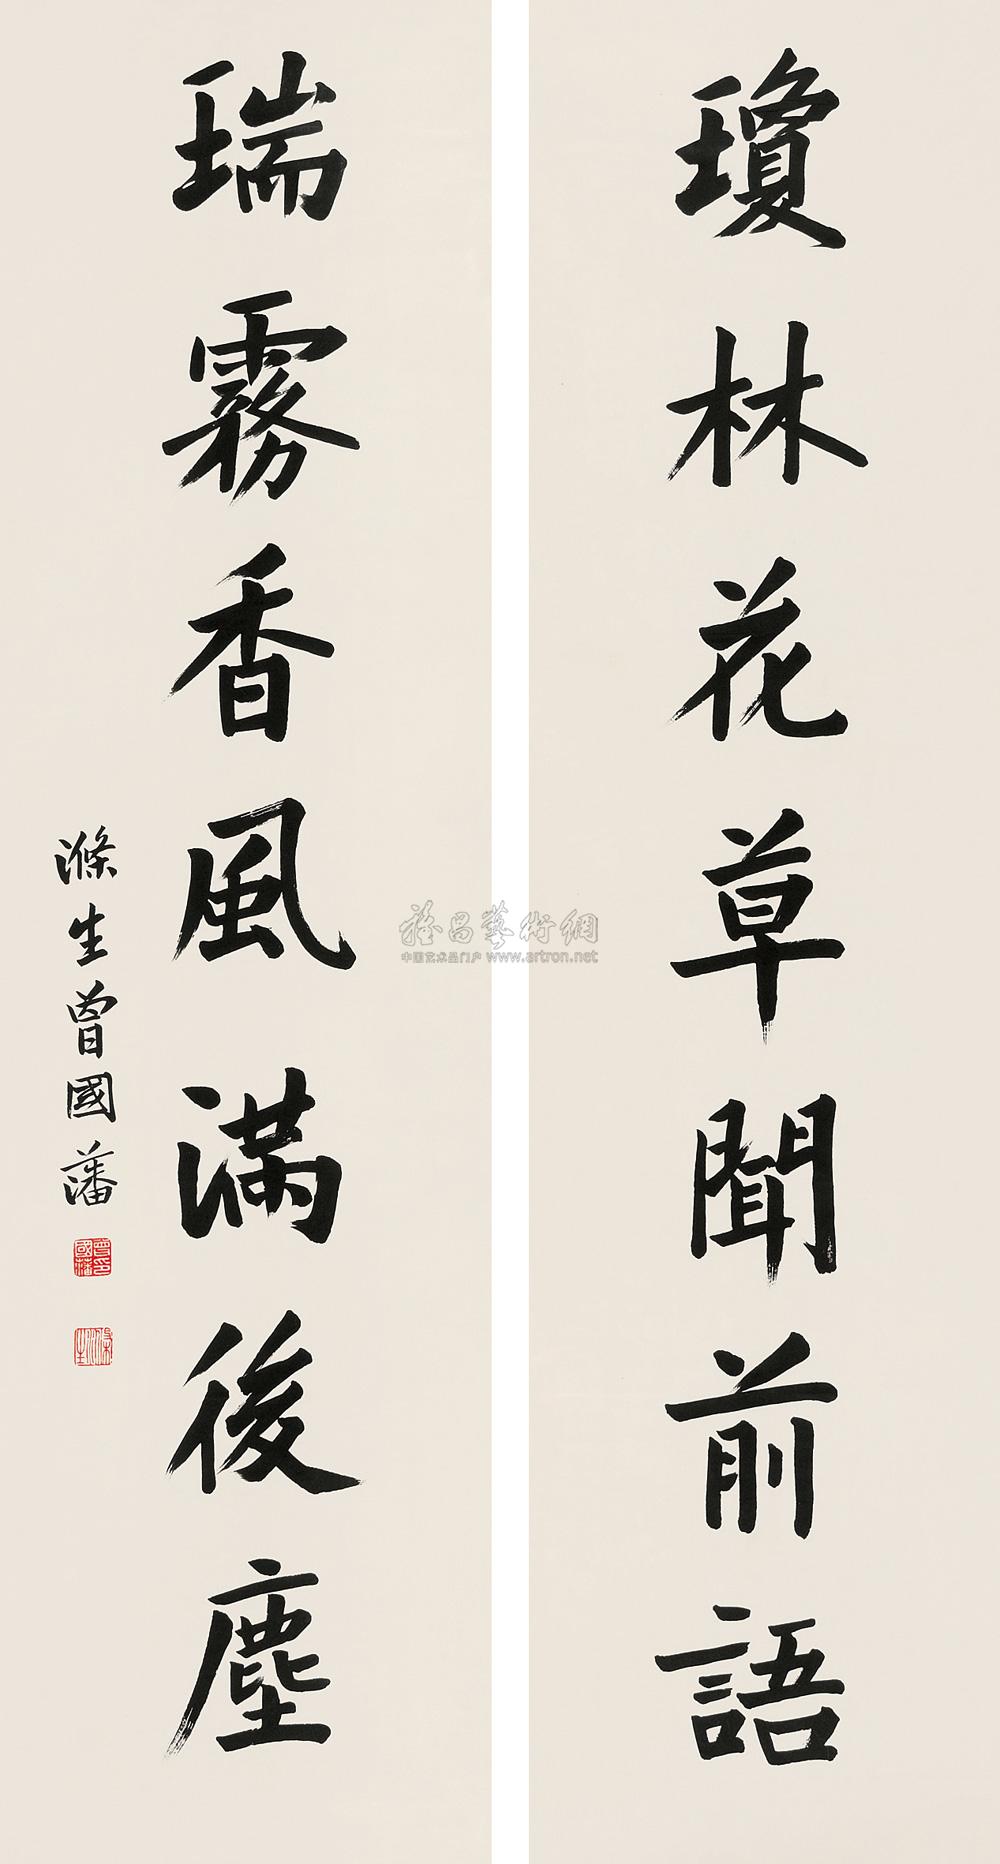 瓊林花草聞前語
瑞霧香風滿後塵
滌生曾國藩
曾國藩印
滌生
雅昌藝術網
中国艺术品门户 www.artron.net